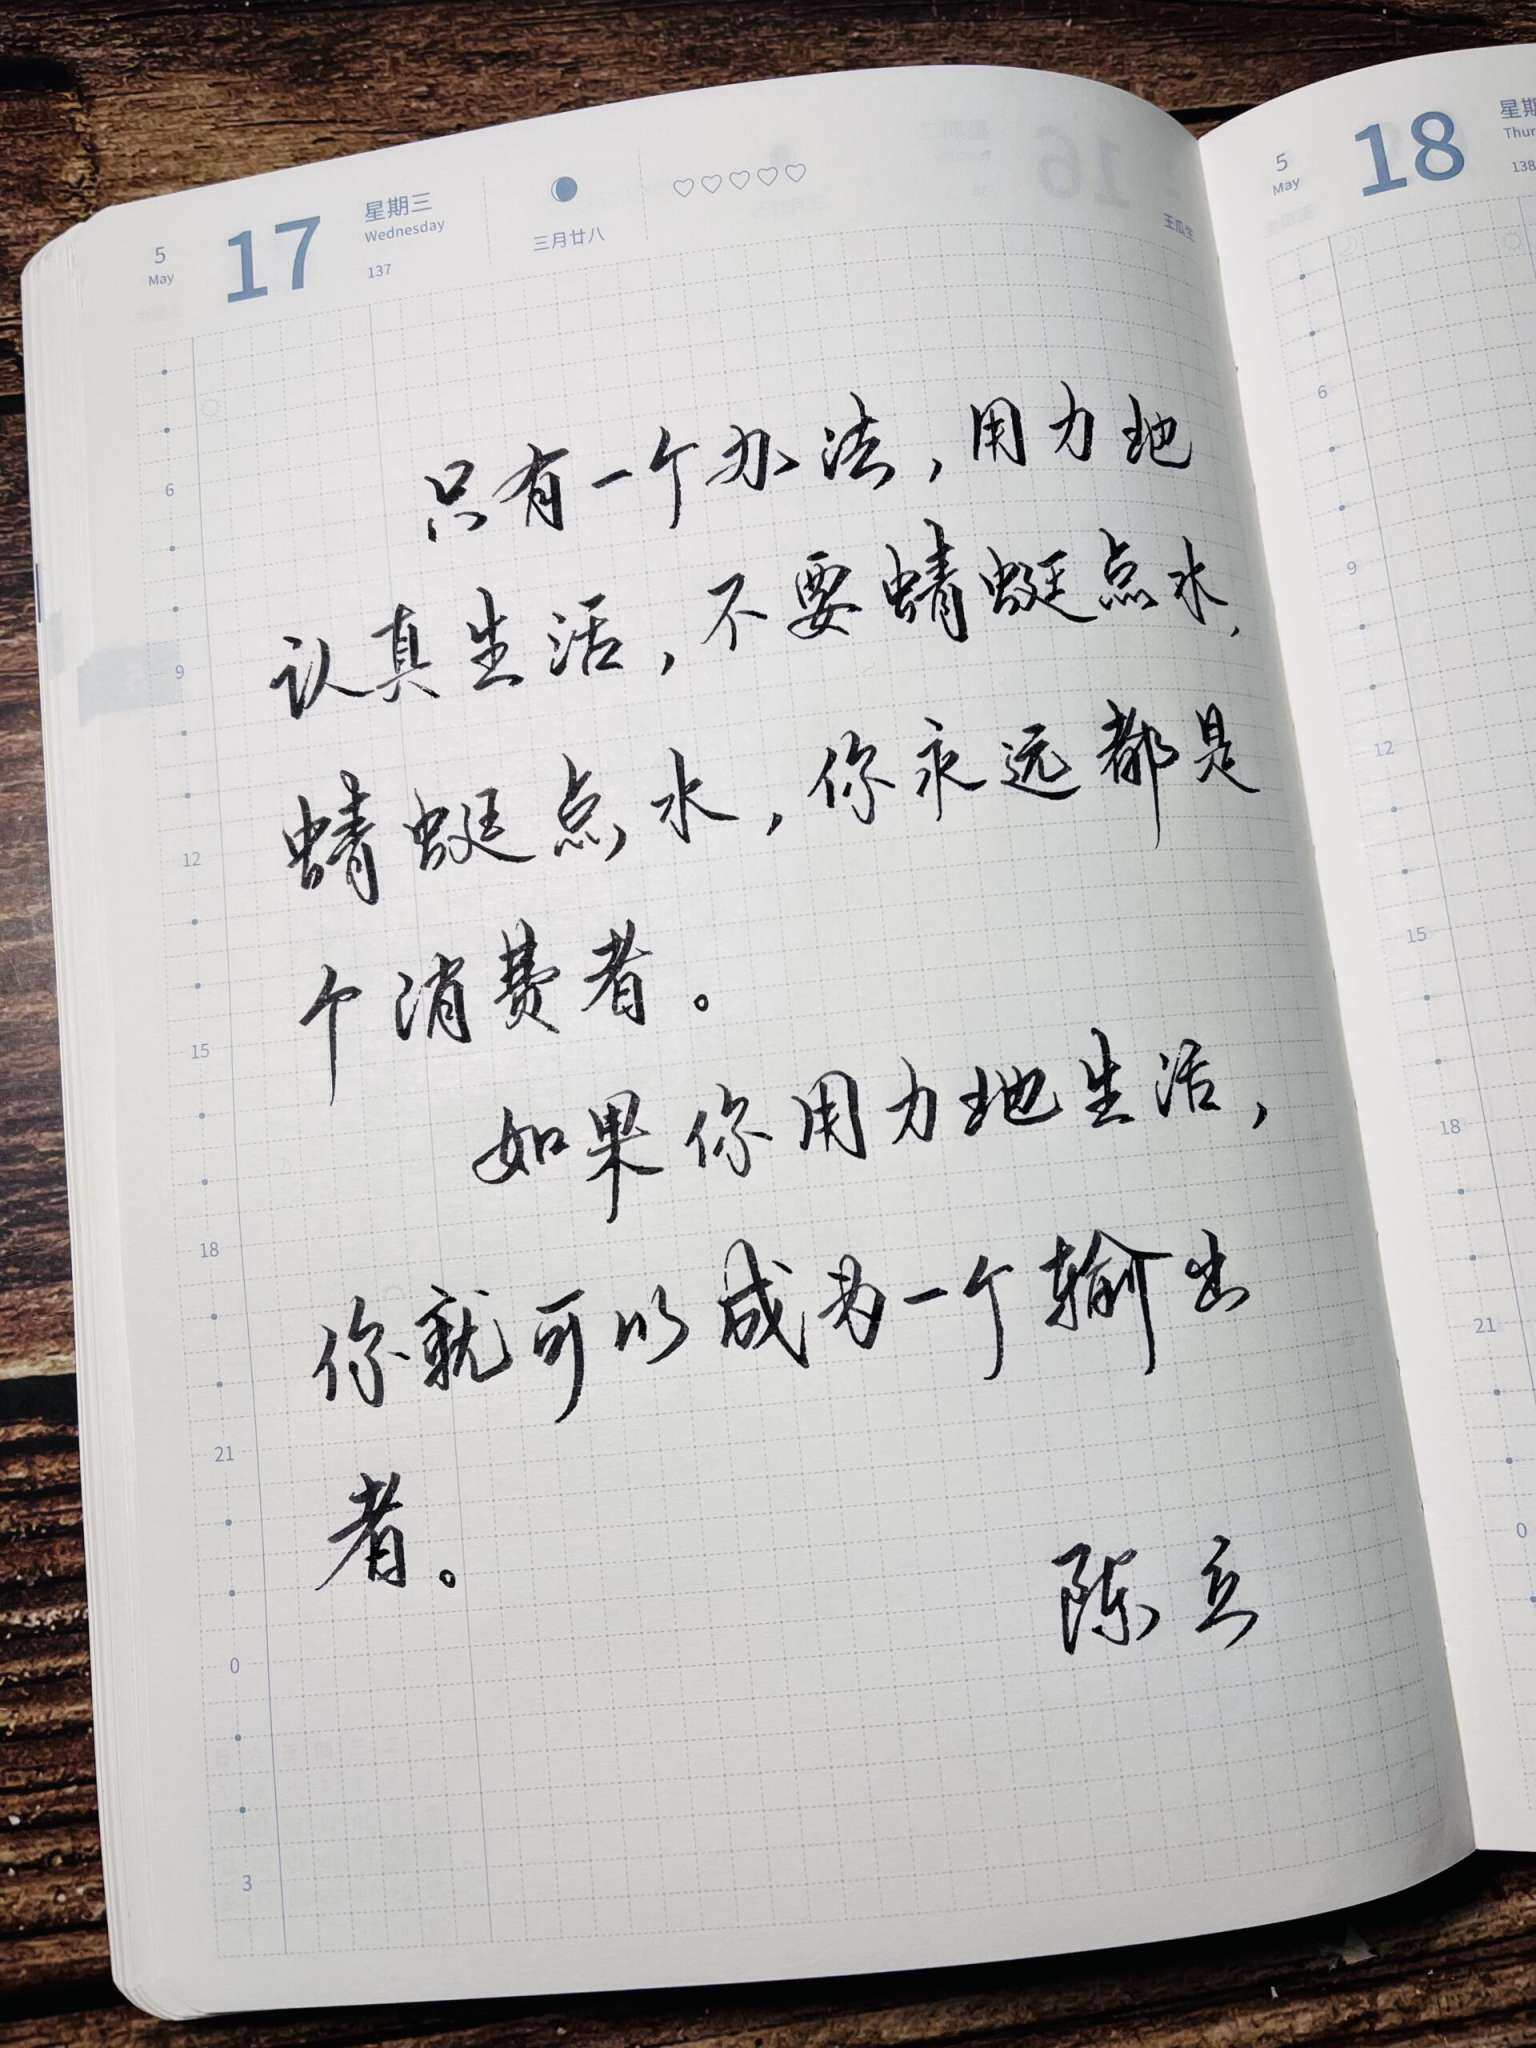 5
May
17
星期三
Wednesday
137
三月廿八
王瓜生
只有一个办法，用力地
认真生活，不要蜻蜓点水，
蜻蜓点水，你永远都是
个消费者。
如果你用力地生活，
你就可以成为一个输出
者。
陈立
6
9
12
15
18
21
0
3
5
May
18
138
6
9
12
15
18
21
0